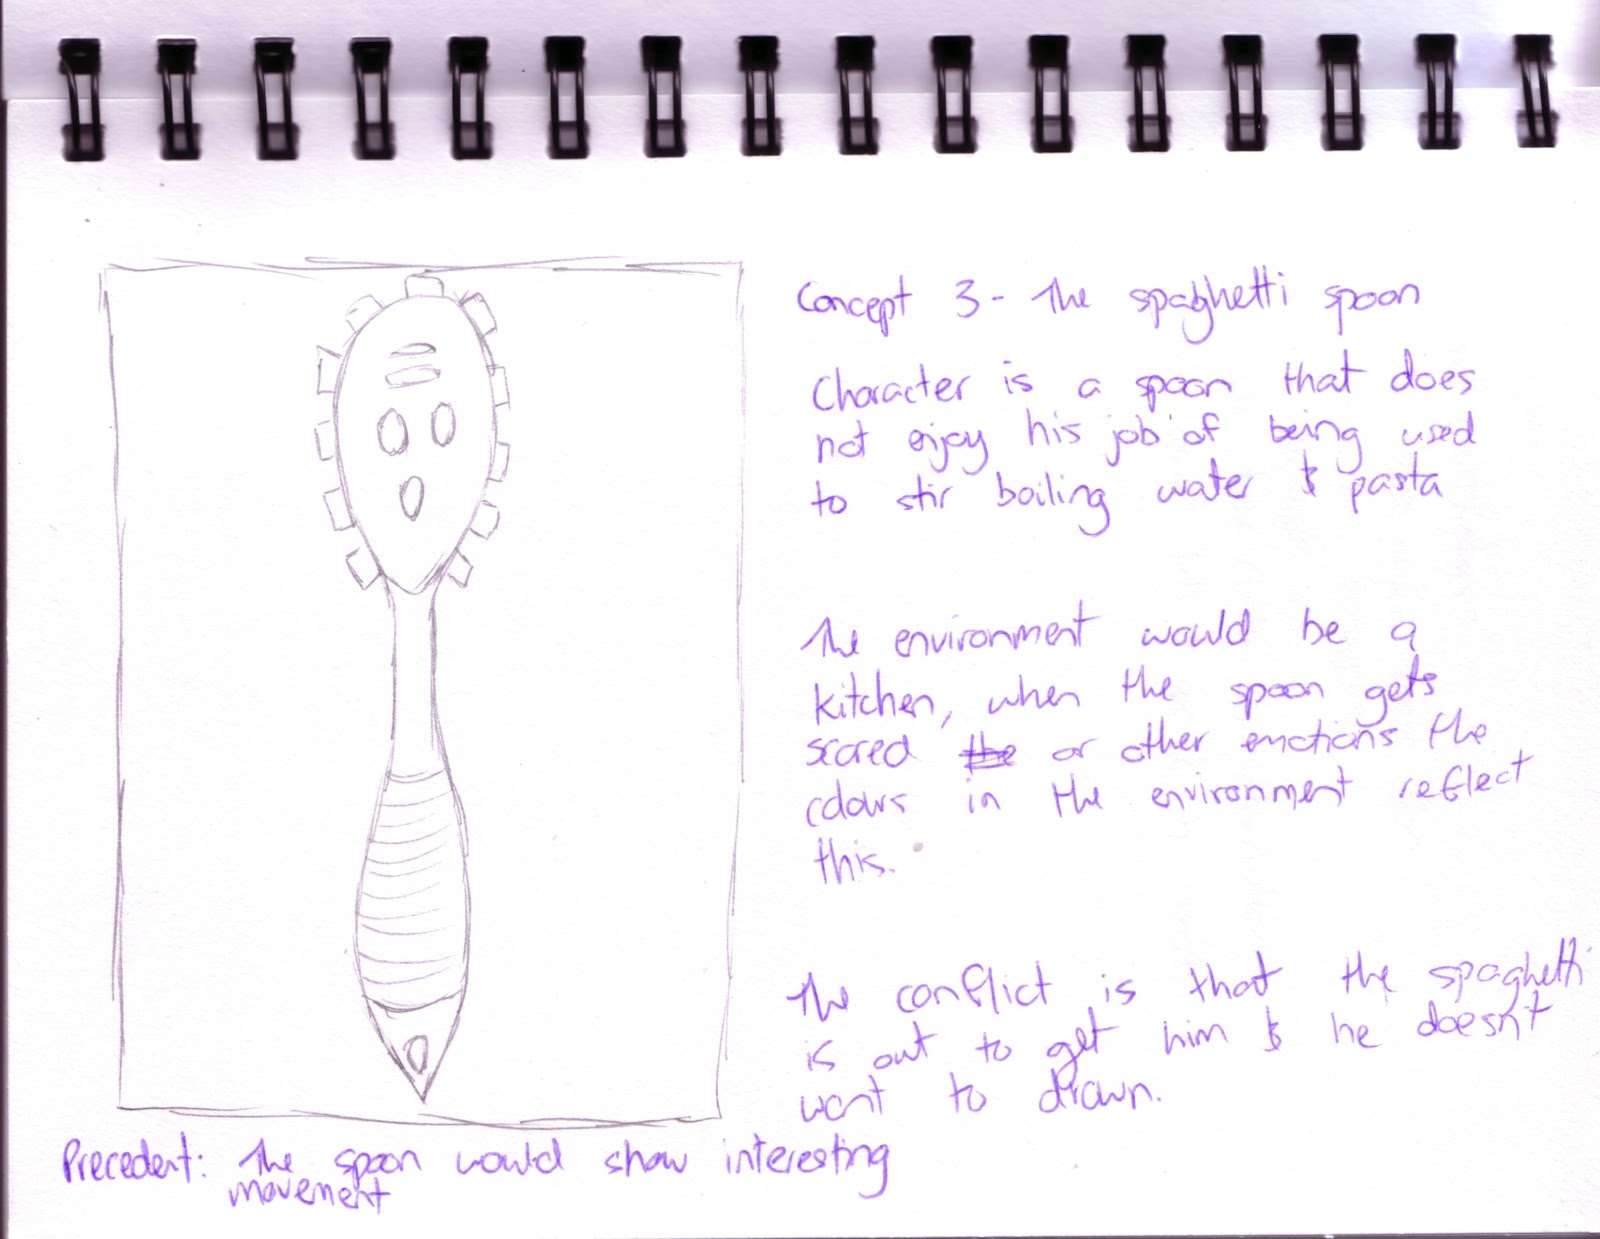 Concept 3 - The spaghetti spoon
Character is a spoon that does
not enjoy his job of being used
to stir boiling water & pasta
The environment would be a
kitchen, when the spoon gets
scared the or other emotions the
colours in the environment reflect
this.
The conflict is that the spaghetti
is out to get him & he doesn't
want to drown.
Precedent: The spoon would show interesting
movement